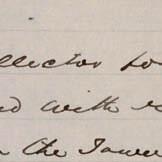 llector to
d with
the Town